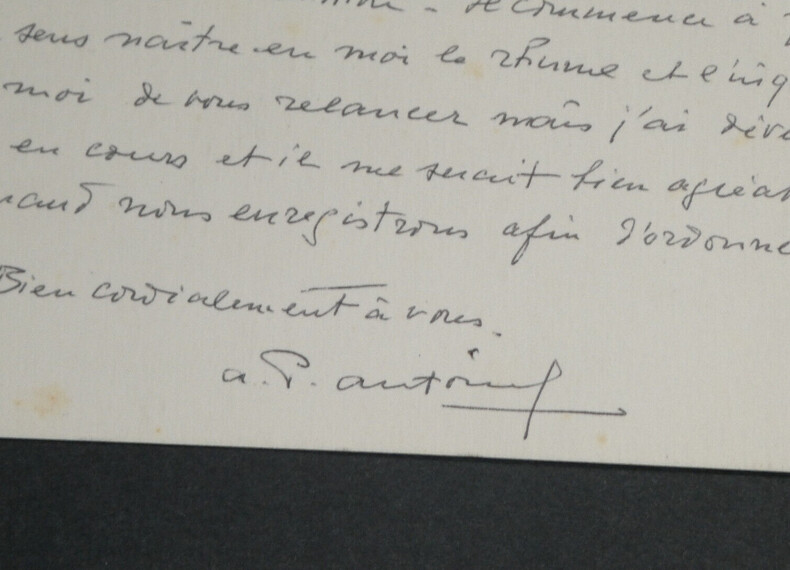 - Je commence à
sens naître en moi le rhume et l'inq
moi de vous relancer mais j'ai dive
en cours et il me serait bien agréab
uand nous enregistrons afin d'ordonne
Bien cordialement à vous.
a. P. antoine